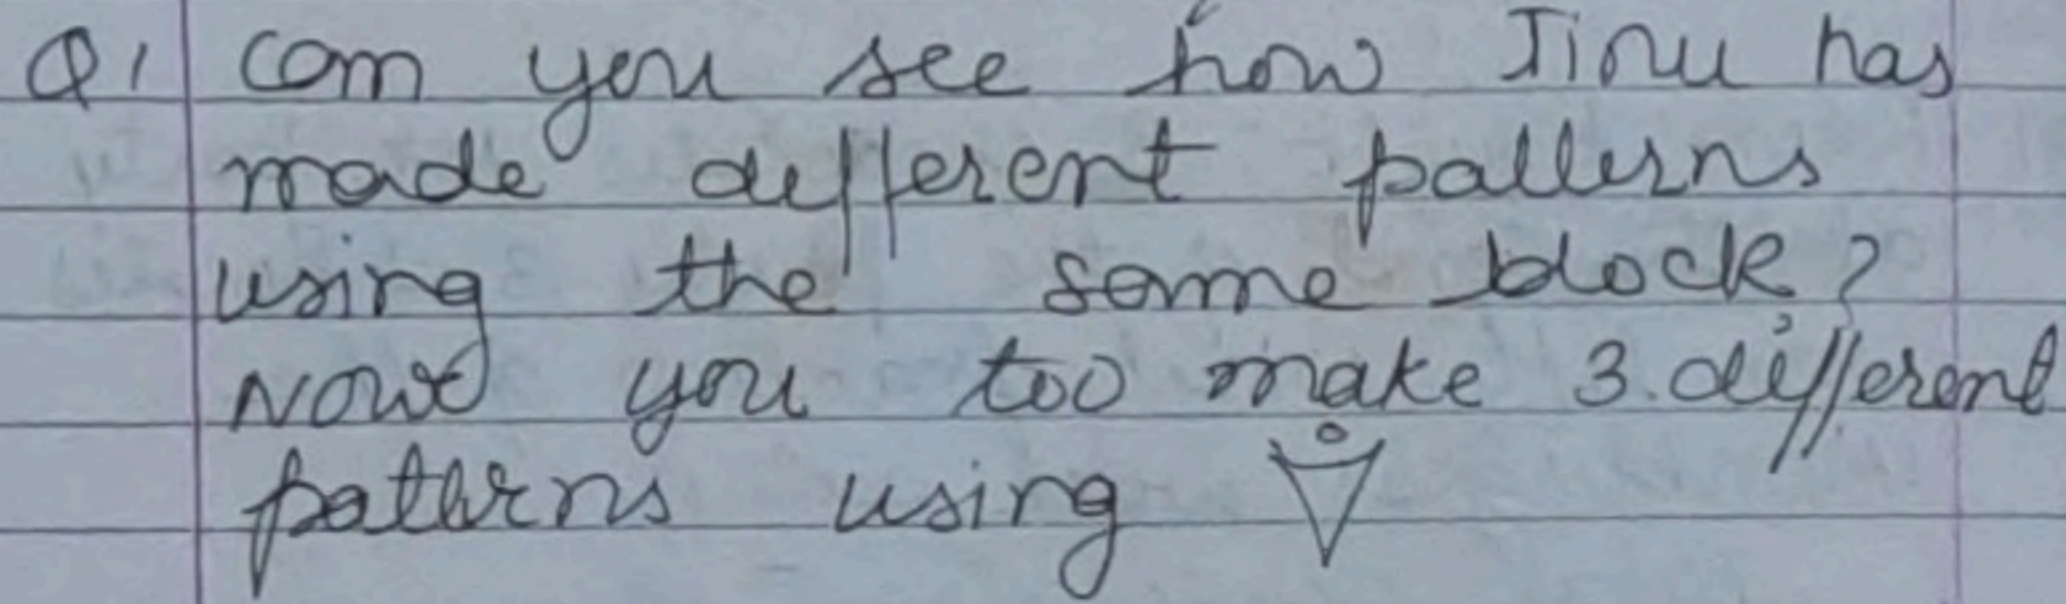 Q1 Can you see how Jinu has
made different patterns
using the same block?
Now you too make 3. different
patterns using